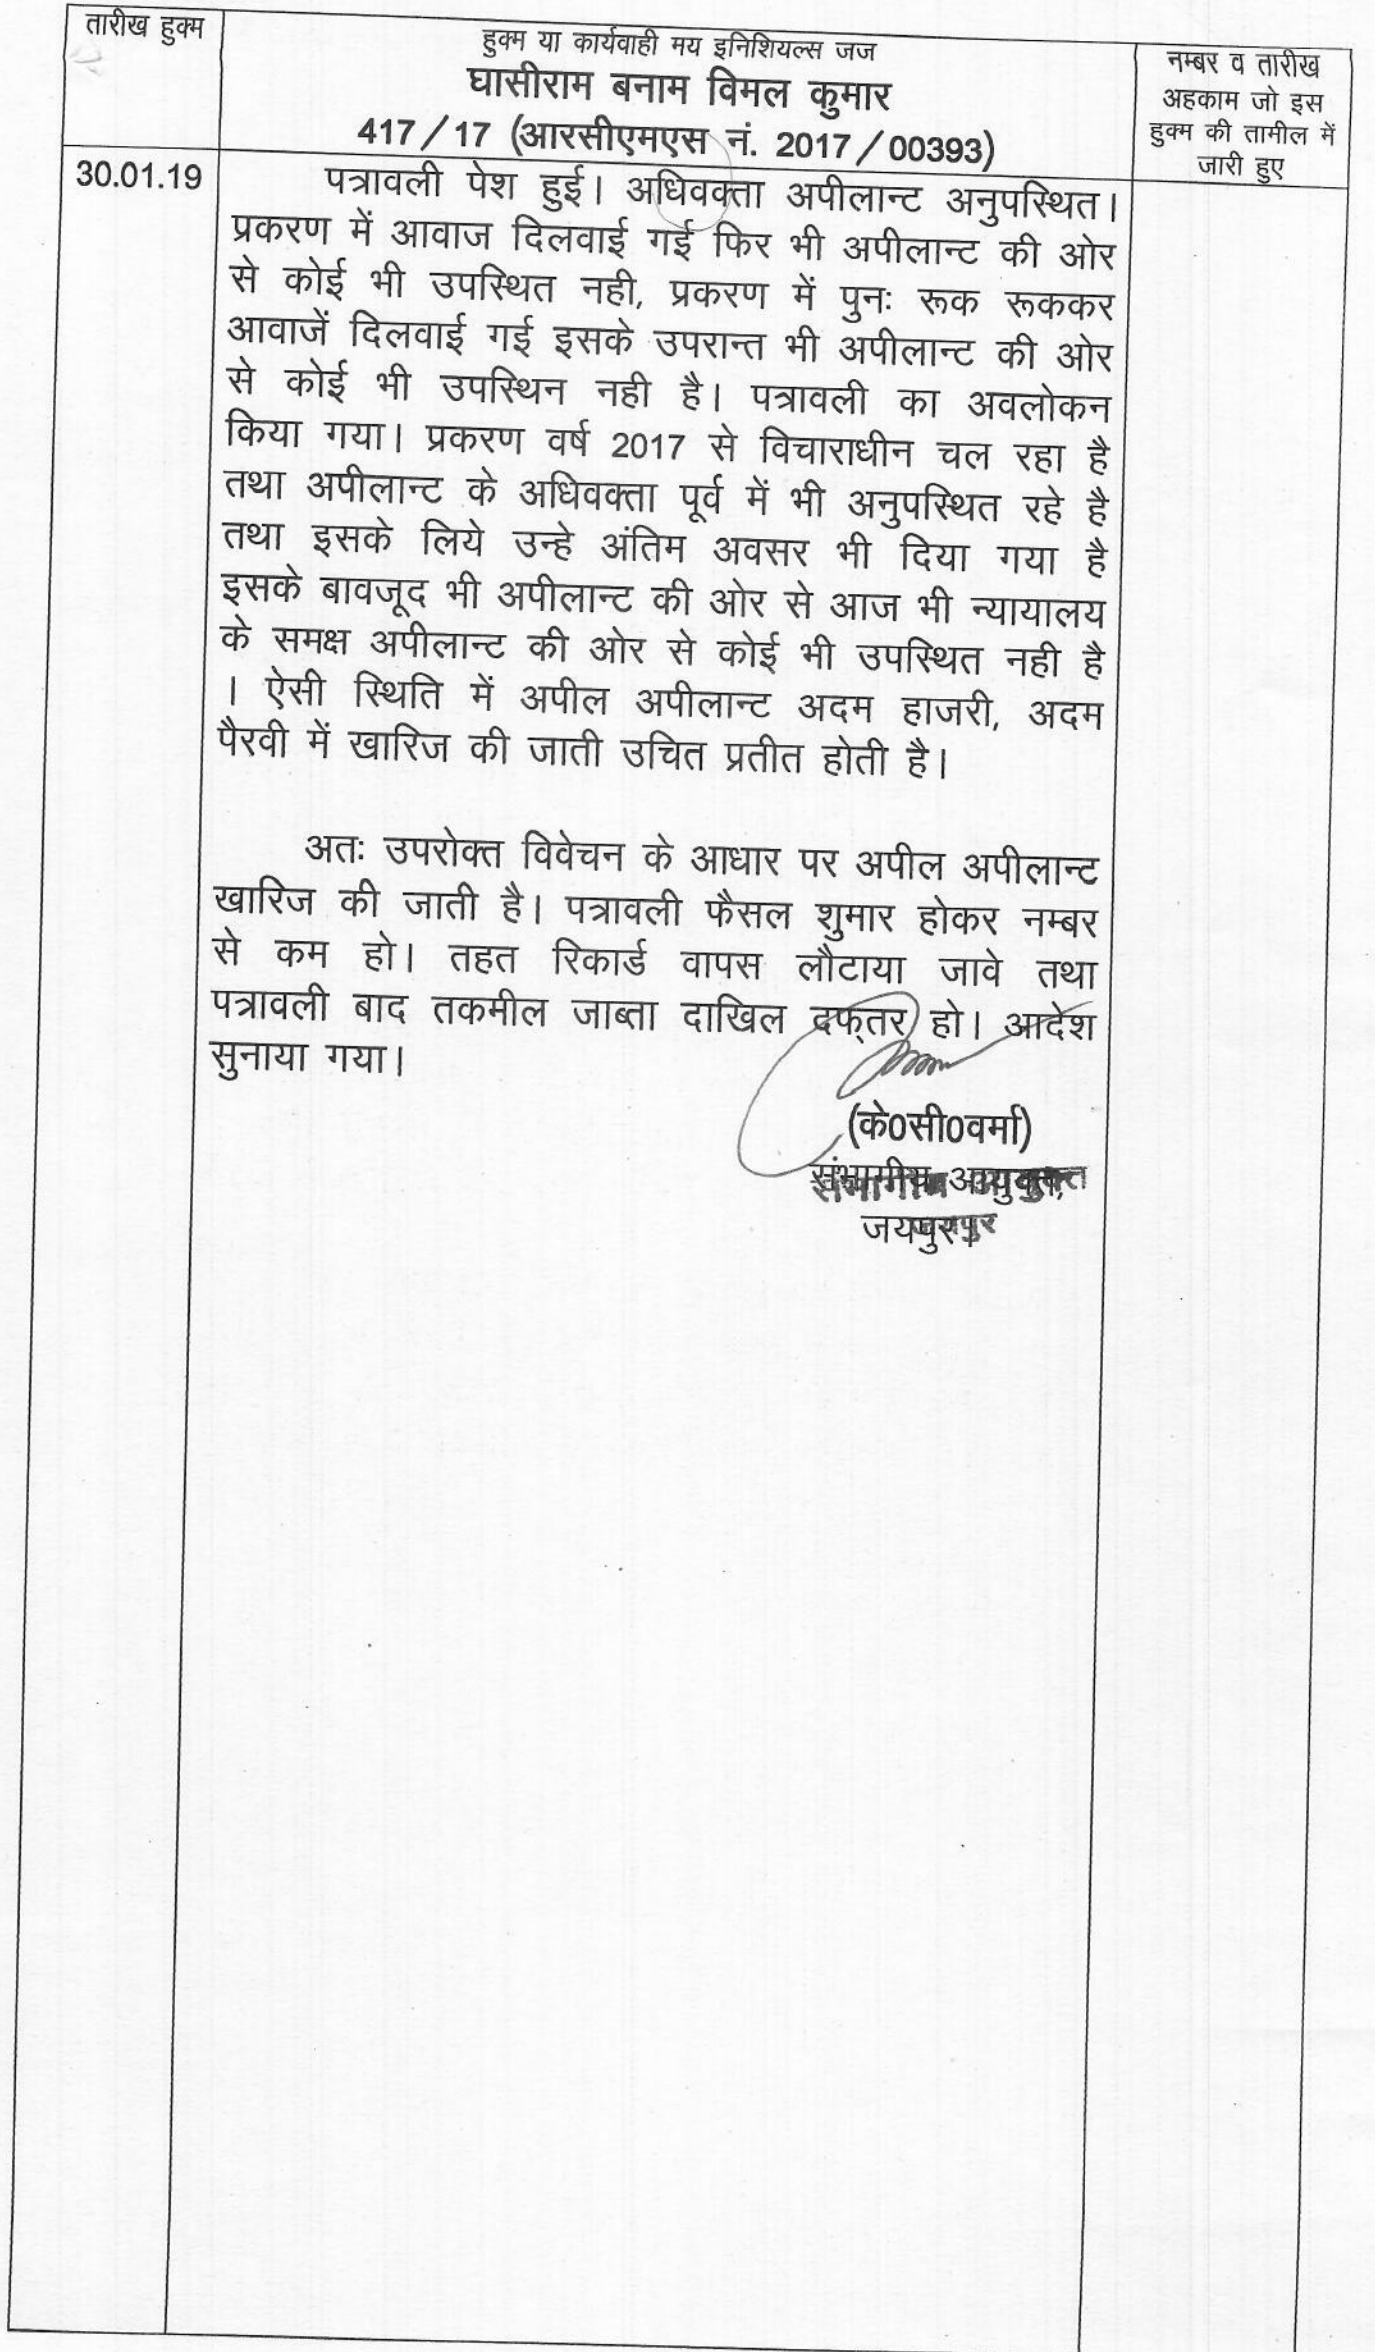 तारीख हुक्म
हुक्म या कार्यवाही मय इनिशियल्स जज
घासीराम बनाम विमल कुमार
417/17 (आरसीएमएस नं. 2017/00393)
नम्बर व तारीख
अहकाम जो इस
हुक्म की तामील में
जारी हुए
30.01.19
पत्रावली पेश हुई। अधिवक्ता अपीलान्ट अनुपस्थित।
प्रकरण में आवाज दिलवाई गई फिर भी अपीलान्ट की ओर
से कोई भी उपस्थित नही, प्रकरण में पुनः रूक रूककर
आवाजें दिलवाई गई इसके उपरान्त भी अपीलान्ट की ओर
से कोई भी उपस्थिन नही है। पत्रावली का अवलोकन
किया गया। प्रकरण वर्ष 2017 से विचाराधीन चल रहा है
तथा अपीलान्ट के अधिवक्ता पूर्व में भी अनुपस्थित रहे है
तथा इसके लिये उन्हे अंतिम अवसर भी दिया गया है
इसके बावजूद भी अपीलान्ट की ओर से आज भी न्यायालय
के समक्ष अपीलान्ट की ओर से कोई भी उपस्थित नही है
। ऐसी स्थिति में अपील अपीलान्ट अदम हाजरी, अदम
पैरवी में खारिज की जाती उचित प्रतीत होती है।
अतः उपरोक्त विवेचन के आधार पर अपील अपीलान्ट
खारिज की जाती है। पत्रावली फैसल शुमार होकर नम्बर
से कम हो। तहत रिकार्ड वापस लौटाया जावे तथा
पत्रावली बाद तकमील जाब्ता दाखिल दफ्तर हो। आदेश
सुनाया गया।
(के0सी0वर्मा)
संभागीय आयुक्त,
जयपुर।